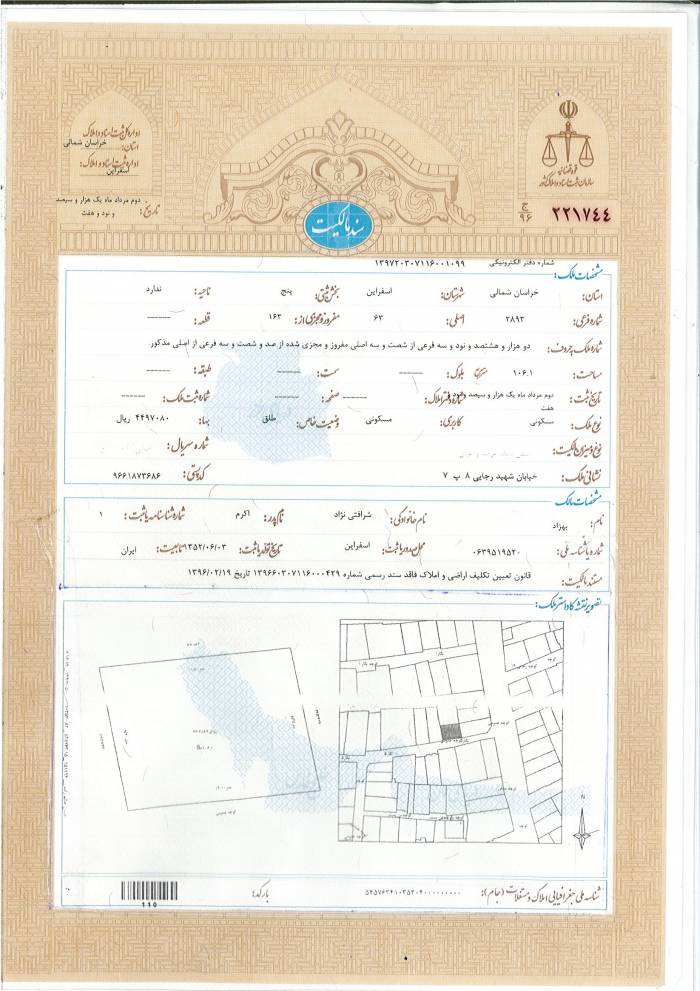 اداره کل ثبت اسناد و املاک
استان: خراسان شمالی
اداره ثبت اسناد و املاک:
اسفراین
تاریخ: دوم مرداد ماه یک هزار و سیصد
و نود و هفت
قوه قضائیه
سازمان ثبت اسناد و املاک کشور
۲۲۱۷۴۴
ج
۹۶
سند مالکیت
شماره دفتر الکترونیکی ۱۳۹۷۲۰۳۰۷۱۱۶۰۰۱۰۹۹
مشخصات ملک:
استان: خراسان شمالی شهرستان: اسفراین بخش ثبتی: پنج ناحیه: ندارد
شماره فرعی: ۲۸۹۳ اصلی: ۶۳ مفروز و مجزی از: ۱۶۳ قطعه: ------
شماره ملک به حروف: دو هزار و هشتصد و نود و سه فرعی از شصت و سه اصلی مفروز و مجزی شده از صد و شصت و سه فرعی از اصلی مذکور.
مساحت: ۱۰۶.۱ متر مربع بلوک: ------ سمت: ------ طبقه: ------
تاریخ ثبت: دوم مرداد ماه یک هزار و سیصد و نود و هفت شماره دفتر املاک: ------ صفحه: ------ شماره ثبت ملک: ------
نوع ملک: مسکونی کاربری: مسکونی وضعیت خاص: طلق بها: ۴۴۹۷۰۸۰ ریال
نوع و میزان مالکیت: شماره سریال:
نشانی ملک: خیابان شهید رجایی ۸ پ ۷ کد پستی: ۹۶۶۱۸۷۳۶۸۶
مشخصات مالک
نام: بهزاد نام خانوادگی: شرافتی نژاد نام پدر: اکرم شماره شناسنامه یا ثبت: ۱
شماره یا شناسه ملی: ۰۶۳۹۵۱۹۵۲۰ محل صدور یا ثبت: اسفراین تاریخ تولد یا ثبت: ۱۳۵۲/۰۶/۰۳ تابعیت: ایران
مستند مالکیت: قانون تعیین تکلیف اراضی و املاک فاقد سند رسمی شماره ۱۳۹۶۶۰۳۰۷۱۱۶۰۰۰۴۲۹ تاریخ ۱۳۹۶/۰۲/۱۹
تصویر نقشه کاداستر ملک:
N
شناسه ملی جغرافیایی املاک و مستغلات (جام):
بارکد:
110